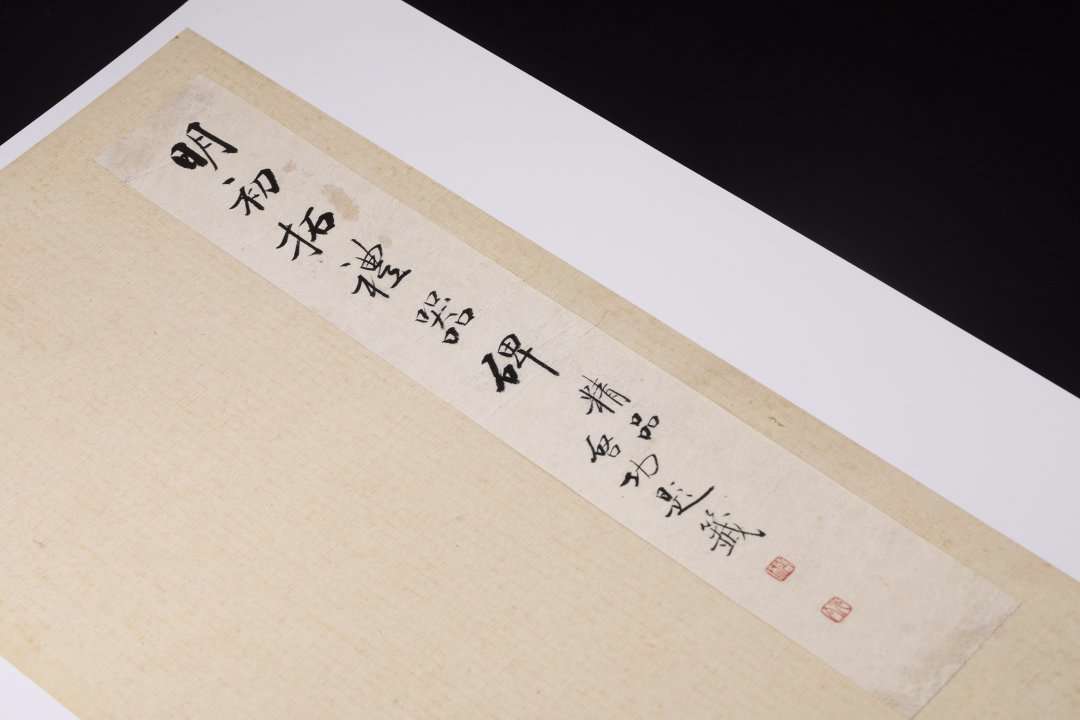 明初拓禮器碑
精品
啓功題籤